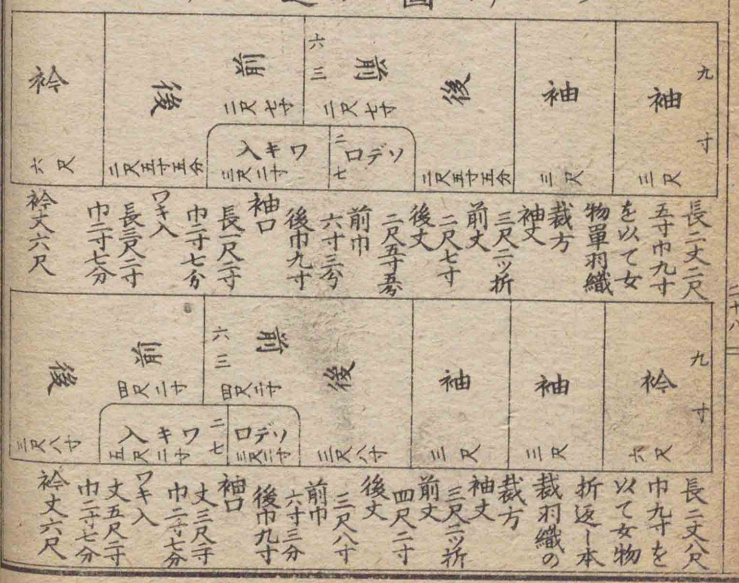 九寸
袖
三尺
袖
三尺
後
二尺五寸五分
前
六三
二尺七寸
ソデ口
二七
前
二尺七寸
ワキ入
三尺二寸
後
二尺五寸五分
衿
六尺
長二丈二尺
五寸巾九寸
を以て女
物單羽織
裁方
袖丈
三尺二ッ折
前丈
二尺七寸
後丈
二尺五寸五分
前巾
六寸三分
後巾九寸
袖口
長一尺二寸
巾二寸七分
ワキ入
長三尺二寸
巾二寸七分
衿丈六尺
九寸
衿
六尺
袖
三尺
袖
三尺
後
三尺八寸
前
六三
四尺二寸
ソデ口
三尺二寸
二七
前
四尺二寸
ワキ入
五尺二寸
後
三尺八寸
長二丈八尺
巾九寸を
以て女物
折返し本
裁羽織の
裁方
袖丈
三尺二ッ折
前丈
四尺二寸
後丈
三尺八寸
前巾
六寸三分
後巾九寸
袖口
丈三尺二寸
巾二寸七分
ワキ入
丈五尺二寸
巾二寸七分
衿丈六尺
二十八